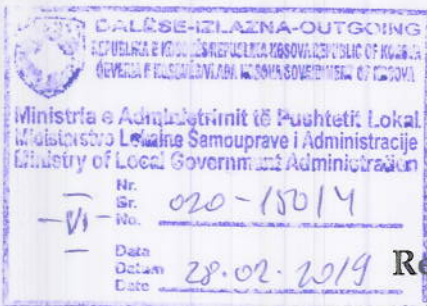 DALËSE-IZLAZNA-OUTGOING
REPUBLIKA E KOSOVËS-REPUBLIKA KOSOVA-REPUBLIC OF KOSOVA
QEVERIA E KOSOVËS/VLADA KOSOVA/GOVERNMENT OF KOSOVA
Ministria e Administrimit të Pushtetit Lokal
Ministarstvo Lokalne Samouprave i Administracije
Ministry of Local Government Administration
Nr.
Br.
-VI- No. 020-150/4
Data
Datum
Date 28.02.2019
Re